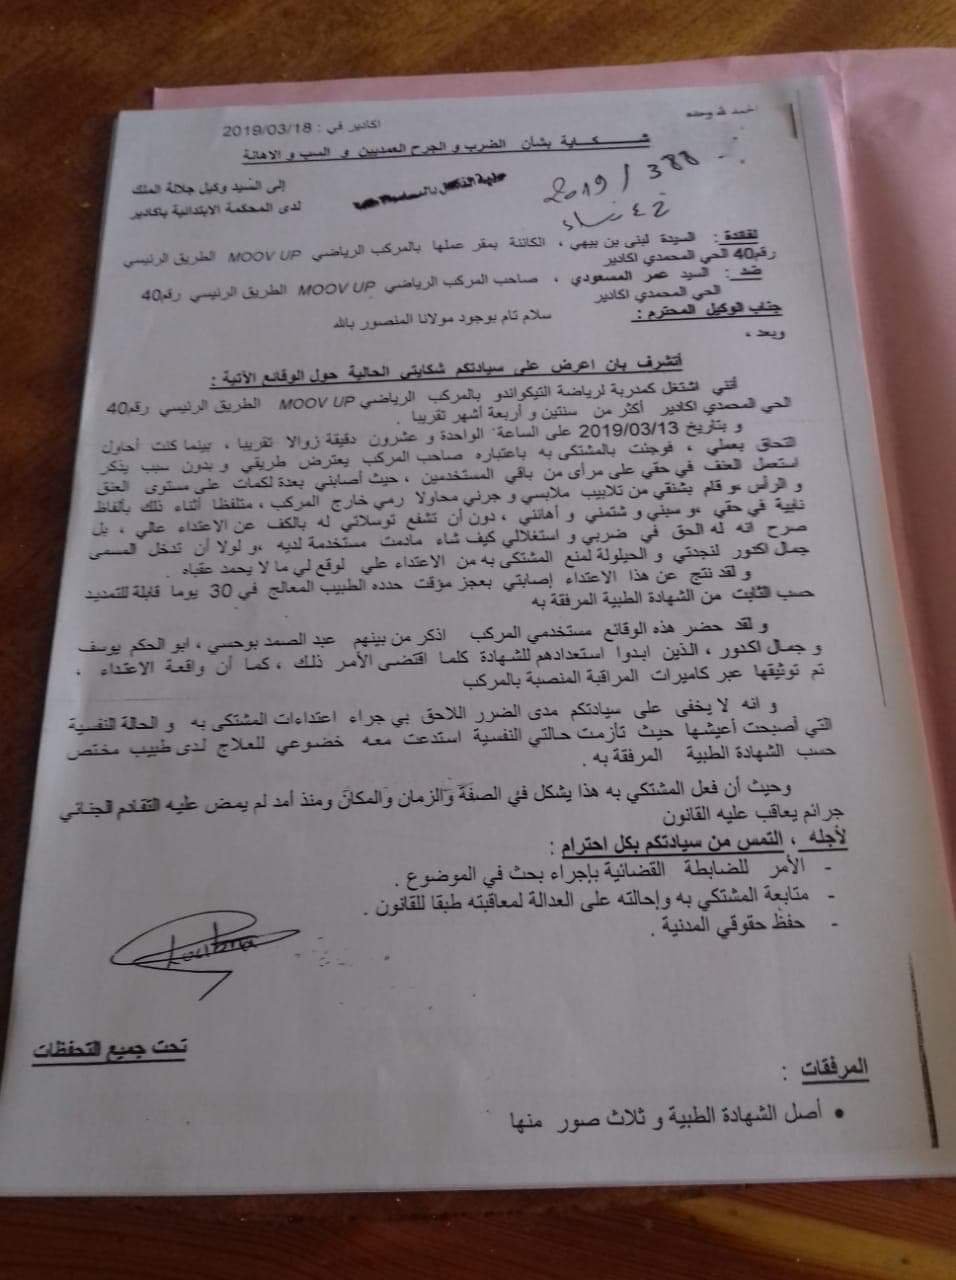 الحمد لله وحده
اكادير في : 2019/03/18
شـــكـــايـة بشأن الضرب و الجرح العمديين و السب و الاهانة
إلى السيد وكيل جلالة الملك
لدى المحكمة الابتدائية باكادير
2019 / 388
لفائدة : السيدة لبنى بن بيهي ، الكائنة بمقر عملها بالمركب الرياضي MOOV UP الطريق الرئيسي
رقم40 الحي المحمدي اكادير
ضد : السيد عمر المسعودي ، صاحب المركب الرياضي MOOV UP الطريق الرئيسي رقم40
الحي المحمدي اكادير
جناب الوكيل المحترم : سلام تام بوجود مولانا المنصور بالله
وبعد ،
أتشرف بان اعرض على سيادتكم شكايتي الحالية حول الوقائع الآتية :
أنني اشتغل كمدربة لرياضة التيكواندو بالمركب الرياضي MOOV UP الطريق الرئيسي رقم40
الحي المحمدي اكادير أكثر من سنتين و أربعة أشهر تقريبا .
و بتاريخ 2019/03/13 على الساعة الواحدة و عشرون دقيقة زوالا تقريبا ، بينما كنت أحاول
التحاق بعملي ، فوجئت بالمشتكى به باعتباره صاحب المركب يعترض طريقي و بدون سبب يذكر
استعمل العنف في حقي على مرأى من باقي المستخدمين ، حيث أصابني بعدة لكمات على مستوى العنق
و الرأس ،و قام بشنقي من تلابيب ملابسي و جرني محاولا رمي خارج المركب ، متلفظا أثناء ذلك بألفاظ
نابية في حقي ،و سبني و شتمني و أهانني ، دون أن تشفع توسلاتي له بالكف عن الاعتداء عالي ، بل
صرح انه له الحق في ضربي و استغلالي كيف شاء مادمت مستخدمة لديه ،و لولا أن تدخل المسمى
جمال اكدور لنجدتي و الحيلولة لمنع المشتكى به من الاعتداء علي لوقع لي ما لا يحمد عقباه .
و لقد نتج عن هذا الاعتداء إصابتي بعجز مؤقت حدده الطبيب المعالج في 30 يوما قابلة للتمديد
حسب الثابت من الشهادة الطبية المرفقة به
و لقد حضر هذه الوقائع مستخدمي المركب اذكر من بينهم عبد الصمد بوحسي ، ابو الحكم يوسف
و جمال اكدور ، الذين ابدوا استعدادهم للشهادة كلما اقتضى الأمر ذلك ، كما أن واقعة الاعتداء ،
تم توثيقها عبر كاميرات المراقبة المنصبة بالمركب
و انه لا يخفى على سيادتكم مدى الضرر اللاحق بي جراء اعتداءات المشتكى به و الحالة النفسية
التي أصبحت أعيشها حيث تأزمت حالتي النفسية استدعت معه خضوعي للعلاج لدى طبيب مختص
حسب الشهادة الطبية المرفقة به .
وحيث أن فعل المشتكي به هذا يشكل في الصفة والزمان والمكان ومنذ أمد لم يمض عليه التقادم الجنائي
جرائم يعاقب عليه القانون
لأجله ، التمس من سيادتكم بكل احترام :
- الأمر للضابطة القضائية بإجراء بحث في الموضوع .
- متابعة المشتكي به وإحالته على العدالة لمعاقبته طبقا للقانون .
- حفظ حقوقي المدنية .
Loubna
تحت جميع التحفظات
المرفقات :
• أصل الشهادة الطبية و ثلاث صور منها